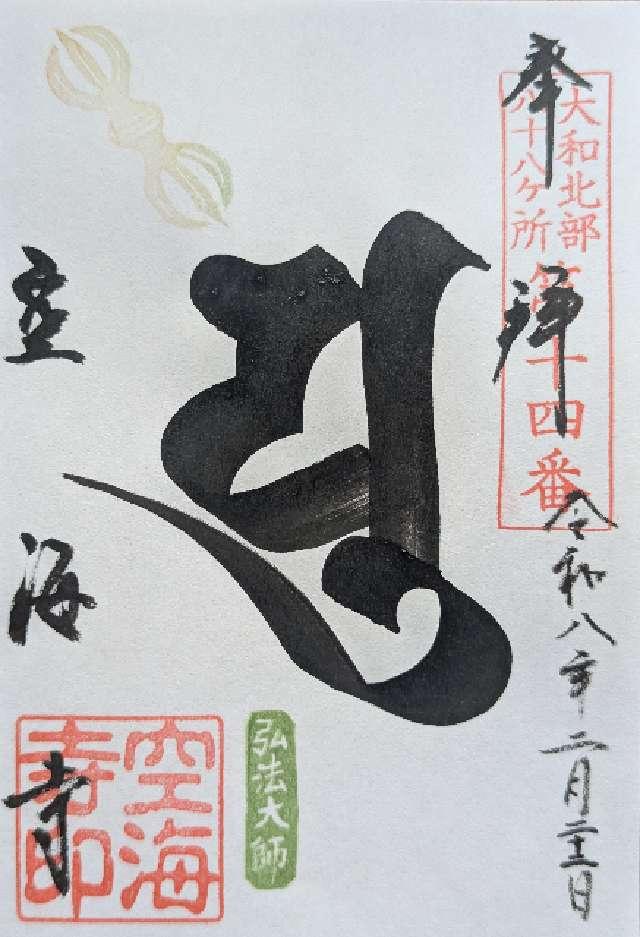 奉拝
大和北部
八十八ケ所
第十四番
令和八年二月二十三日
弘法大師
空海寺
空海
寺印